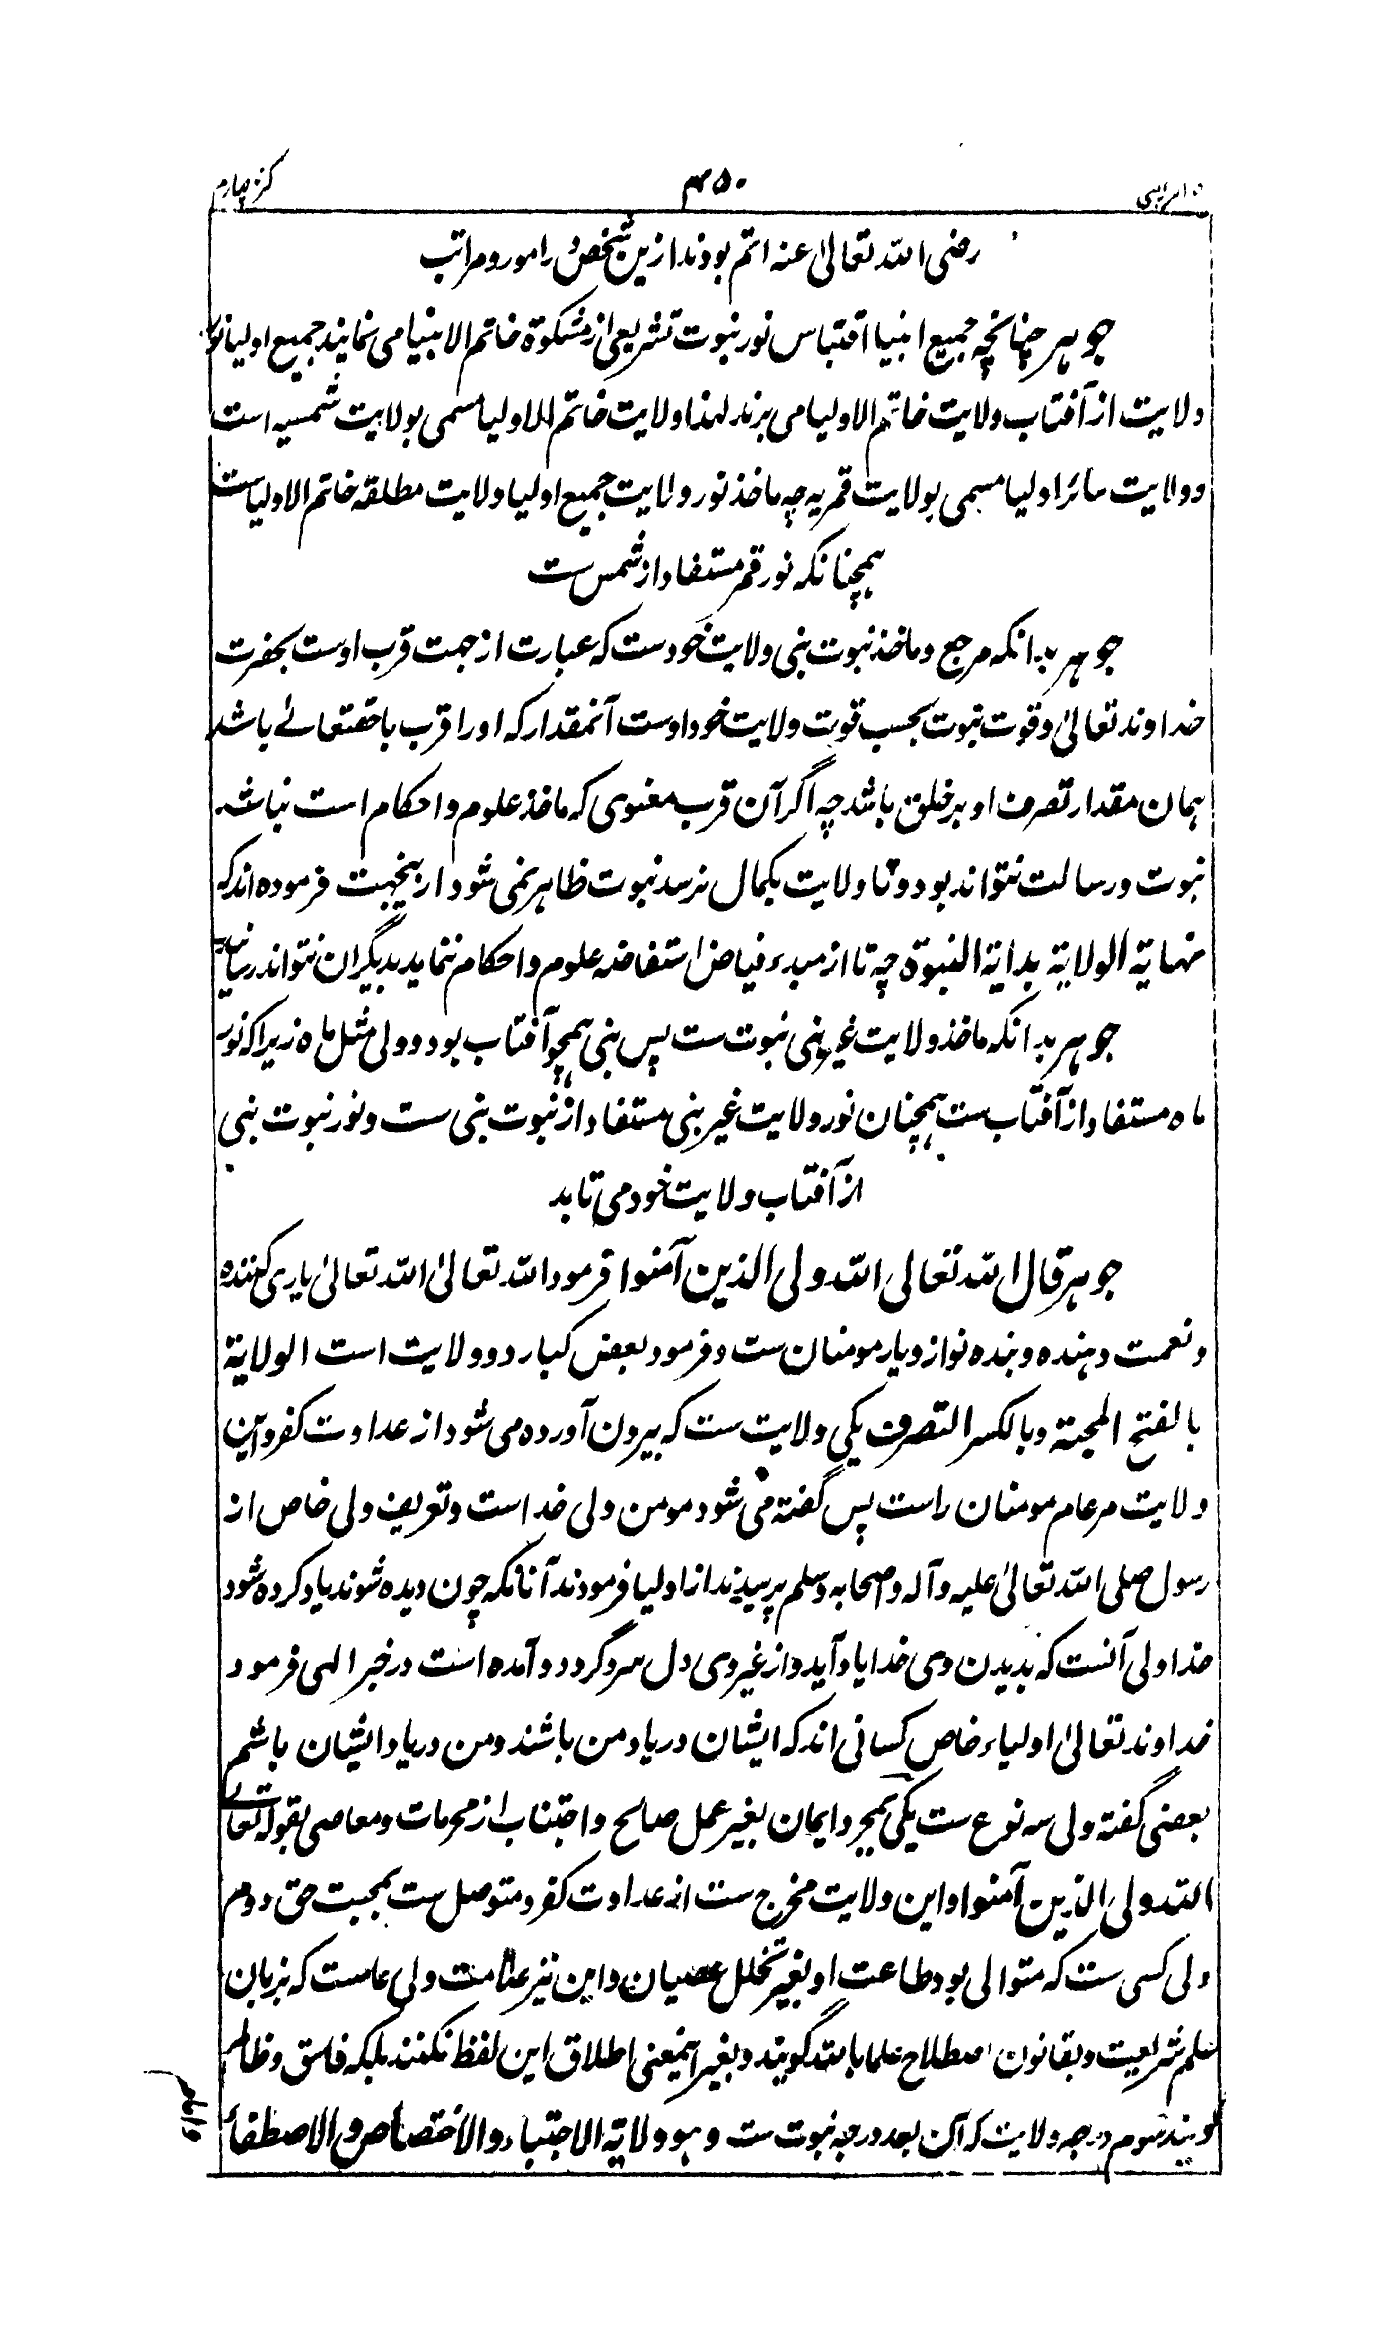 کنز چهارم
۴۵۰
رضی الله تعالیٰ عنه اتم بودند ازین شخص در امور و مراتب
جوهر چنانچه جمیع انبیا اقتباس نور نبوت تشریعی از مشکوة خاتم الانبیا می نمایند جمیع اولیا نور
ولایت از آفتاب ولایت خاتم الاولیا می برند لهذا ولایت خاتم الاولیا مسمی بولایت شمسیه است
و ولایت سائر اولیا مسمی بولایت قمریه چه ماخذ نور ولایت جمیع اولیا ولایت مطلقه خاتم الاولیاست
همچنانکه نور قمر مستفاد از شمس ست
جوهر بدانکه مرجع و ماخذ نبوت نبی ولایت خودست که عبارت از جهت قرب اوست بحضرت
خداوند تعالیٰ و قوت نبوت بحسب قوت ولایت خود اوست آنمقدار که او را قرب باحقتعالے باشد
همان مقدار تصرف او بر خلق باشد چه اگر آن قرب معنوی که ماخذ علوم و احکام است نباشد
نبوت و رسالت نتواند بود و تا ولایت بکمال نرسد نبوت ظاهر نمی شود ازینجهت فرموده اند که
نهایة الولایة بدایة النبوة چه تا از مبدء فیاض استفاضه علوم و احکام ننماید بدیگران نتواند رسانید
جوهر بدانکه ماخذ ولایت غیر نبی نبوت ست پس نبی همچو آفتاب بود و ولی مثل ماه زیرا که نور
ماه مستفاد از آفتاب ست همچنان نور ولایت غیر نبی مستفاد از نبوت نبی ست و نور نبوت نبی
از آفتاب ولایت خود می تابد
جوهر قال الله تعالی الله ولی الذین آمنوا فرمود الله تعالیٰ الله تعالیٰ یاری کننده
و نعمت دهنده و بنده نواز و یار مومنان ست و فرمود بعض کبار دو ولایت است الولایة
بالفتح المحبة و بالکسر التصرف یکی ولایت ست که بیرون آورده می شود از عداوت کفر و این
ولایت مر عام مومنان راست پس گفته می شود مومن ولی خداست و تعریف ولی خاص از
رسول صلی الله تعالیٰ علیه و آله و اصحابه و سلم پرسیدند از اولیا فرمودند آنانکه چون دیده شوند یاد کرده شود
خدا ولی آنست که بدیدن وی خدا یاد آید و از غیر وی دل سرد گردد و آمده است در خبر الهی فرمود
خداوند تعالیٰ اولیاء خاص کسانی اند که ایشان در یاد من باشند و من در یاد ایشان باشم
بعضی گفته ولی سه نوع ست یکی بمجرد ایمان بغیر عمل صالح و اجتناب از محرمات و معاصی بقوله تعالی
الله ولی الذین آمنوا و این ولایت مخرج ست از عداوت کفر و متوصل ست بمحبت حق دوم
ولی کسی ست که متوالی بود طاعت او بغیر تخلل عصیان و این نیز علامت ولی عامست که بزبان
علم شریعت و بقانون اصطلاح علما بالله گویند و بغیر اینمعنی اطلاق این لفظ نکنند بلکه فاسق و ظالم
گویند سوم درجه ولایت که آن بعد درجه نبوت ست و هو ولایة الاجتباء و الاختصاص و الاصطفاء